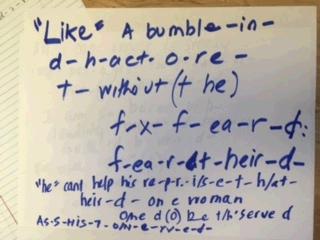 "Like" A bumble-in-
d-h-act-o-re-
t-without (t he)
f-x-f-ea-r-d:
f-ea-r-dt-heir-d-
"he" cant help his re-p-r-i/s-e-t-h/at-
heir-d-on e woman
ome d(o) be t/h serve d
As-s-His-7-om-e-rv-e-d-